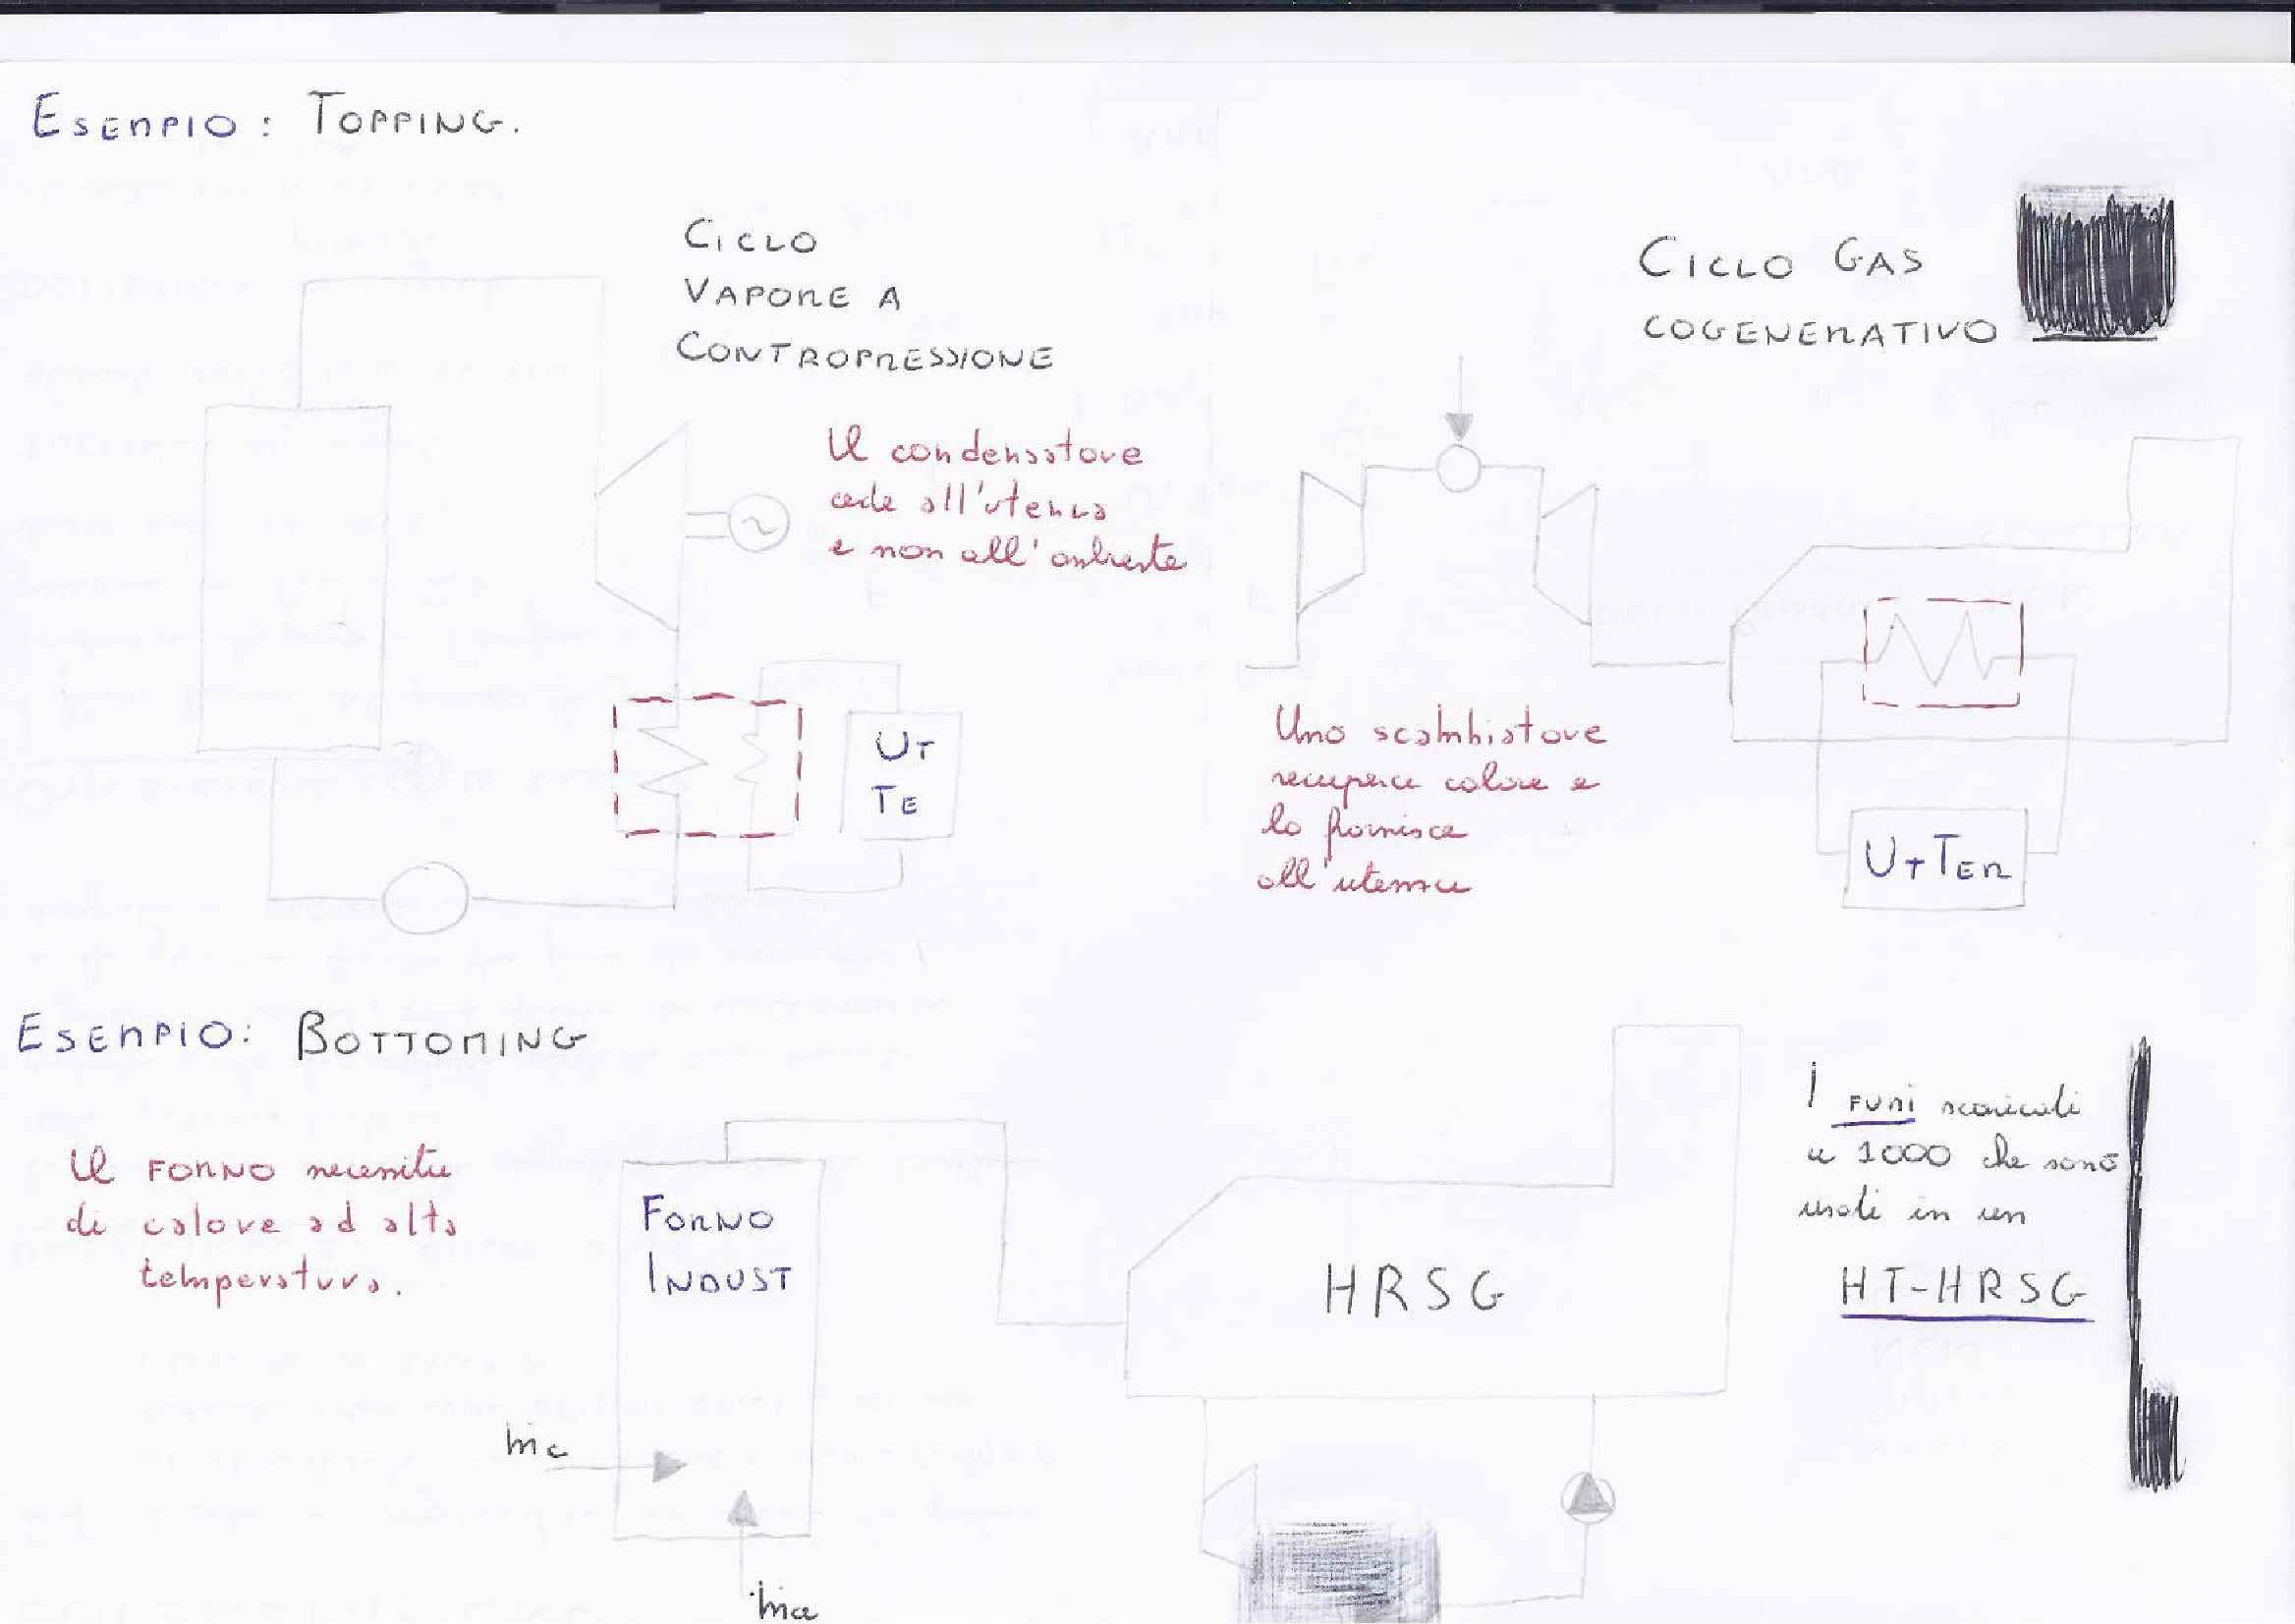 ESEMPIO: TOPPING.
CICLO
VAPORE A
CONTROPRESSIONE
Il condensatore
cede all'utenza
e non all'ambiente
UT
TE
CICLO GAS
COGENERATIVO
Uno scambiatore
recupera calore e
lo fornisce
all'utenza
UT TER
ESEMPIO: BOTTOMING
Il FORNO necessita
di calore ad alta
temperatura.
FORNO
INDUST
ṁc
ṁa
HRSG
I FUMI scaricati
a 1000 che sono
usati in un
HT-HRSG